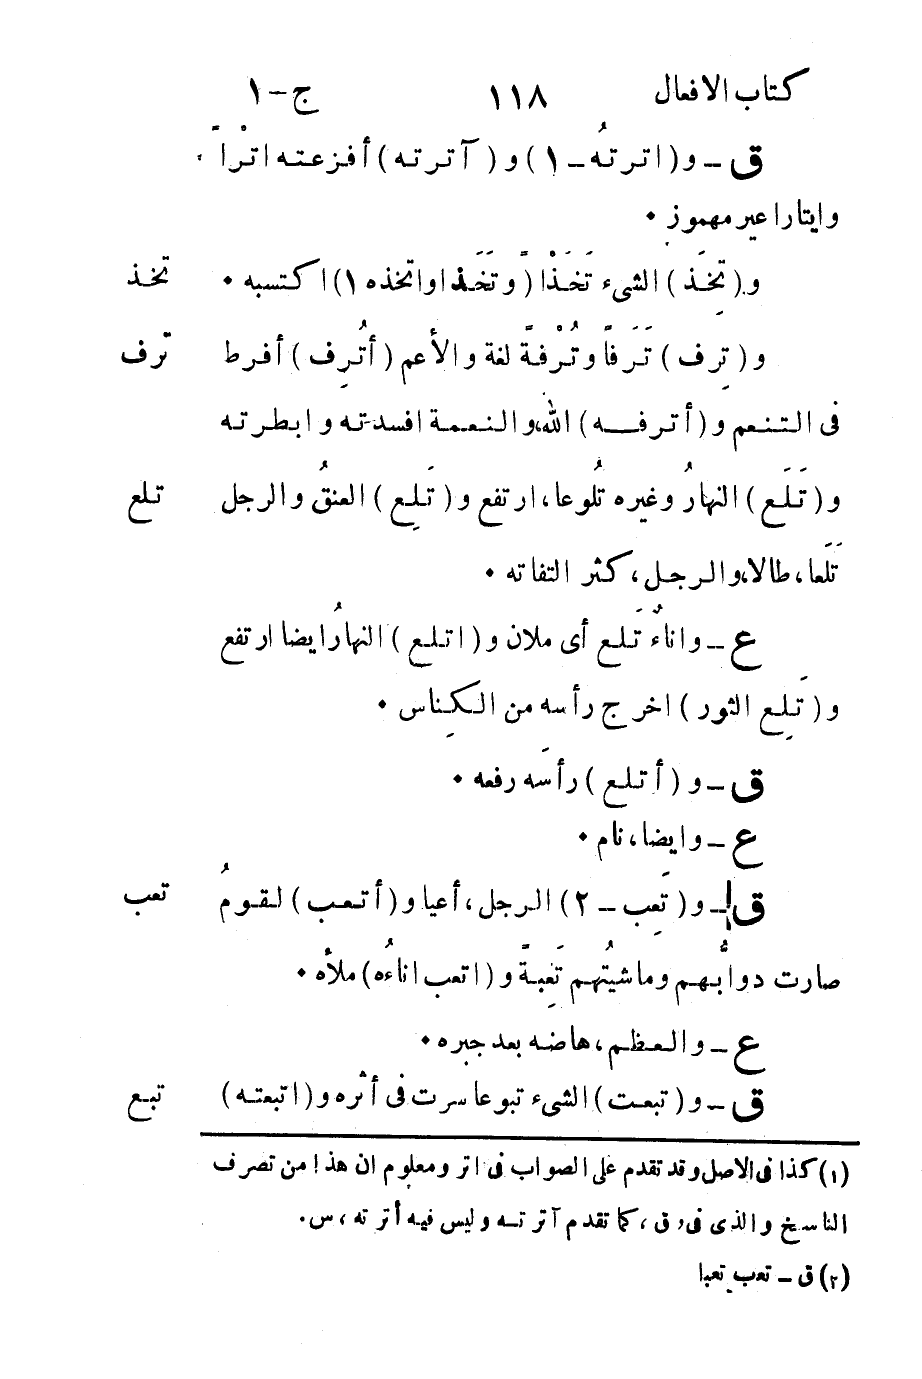 كتاب الافعال ١١٨ ج-١
ق - و(اترتهُ - ١) و(آترته) أفزعته اتْراً
وايتارا عير مهموز ٠
و(تَخِذ) الشىء تَخَذْاً (وتَخَذا واتخذه ١) اكتسبه ٠ تخذ
و(ترِف) تَرَفاً وتُرْفةً لغة والأعم (أُترِف) أفرط ترف
فى التنعم و(أترفه) الله، والنعمة افسدته وابطرته
و(تَلَع) النهارُ وغيره تُلوعا، ارتفع و(تَلِع) العنقُ والرجل تلع
تَلَعا، طالا، والرجل، كثر التفاته ٠
ع - واناءٌ تَلِع أى ملان و(اتلع) النهارُ ايضا ارتفع
و(تَلِع الثور) اخرج رأسه من الكِناس ٠
ق - و(أتلع) رأسَه رفعه ٠
ع - وايضا، نام ٠
ق - و(تَعِب - ٢) الرجل، أعيا و(أتعب) لقومُ تعب
صارت دوابُّهم وماشيتُهم تَعِبةً و(اتعب اناءُه) ملأه ٠
ع - والعظم، هاضه بعد جبره ٠
ق - و(تبعت) الشىء تبوعا سرت فى أثره و(اتبعته) تبع
(١) كذا فى الاصل وقد تقدم على الصواب فى اتر ومعلوم ان هذا من تصرف
الناسخ والذى فى ق، كما تقدم آترته وليس فيه أترته، س.
(٢) ق - تعب تعبا